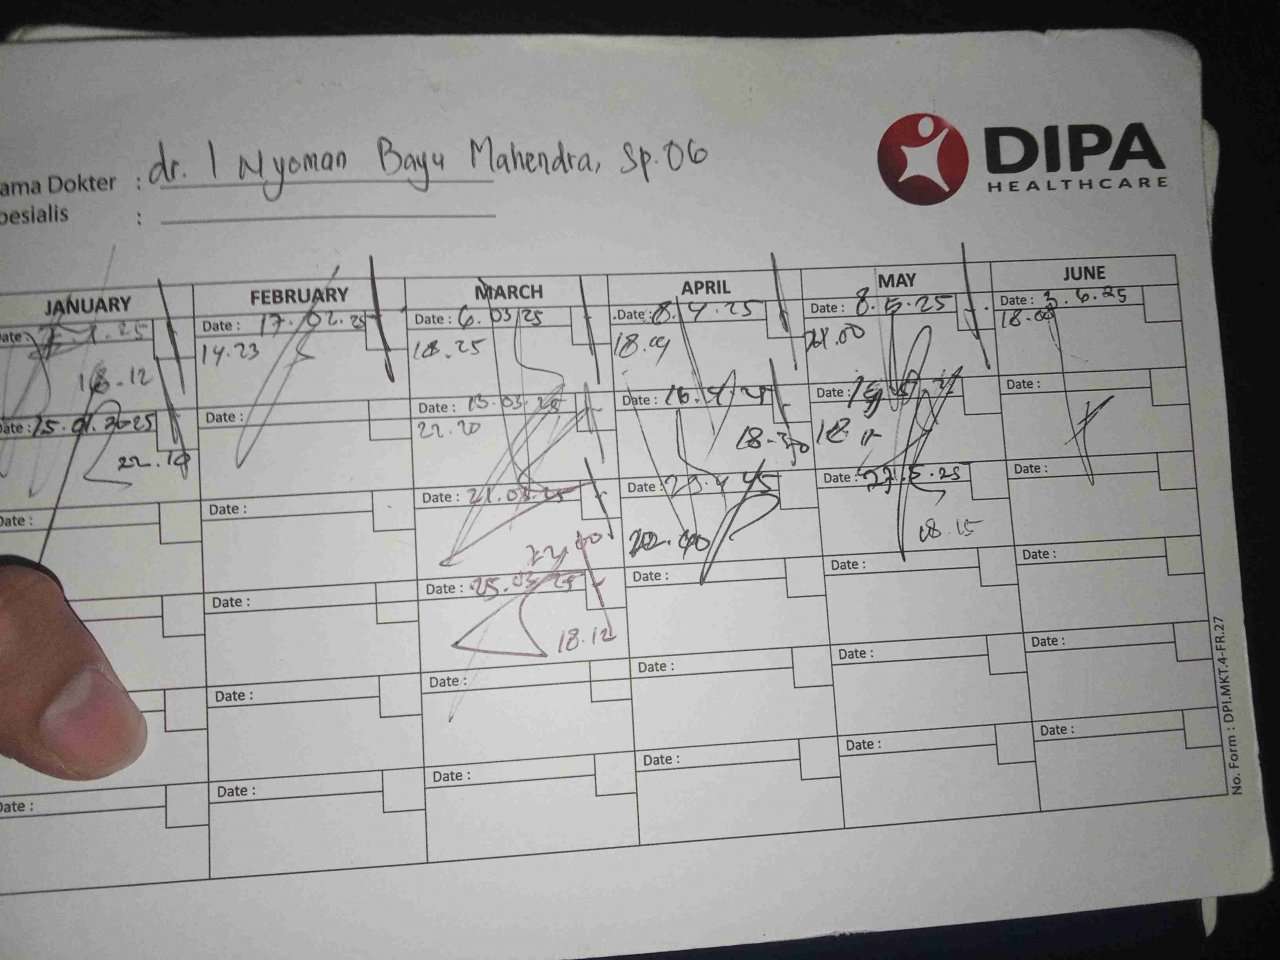 dr. I Nyoman Bayu Mahendra, Sp.OG
ama Dokter :
pesialis :
DIPA
HEALTHCARE
JANUARY FEBRUARY MARCH APRIL MAY JUNE
Date : 17.02.25 Date : 6.03.25 Date : 8.4.25 Date : 8.5.25 Date : 3.6.25
14.23 18.25 18.09 21.00 18.00
18.12
Date : 15.01.2025 Date : Date : 13.03.25 Date : 16.4.25 Date : Date :
22.20 18.30 18
22.10
Date : Date : Date : 21.03.25 Date : Date : 27.5.25 Date :
18.15
Date : Date : 25.03.25 Date : Date : Date :
18.12
Date : Date : Date : Date : Date :
Date : Date : Date : Date : Date : Date :
No. Form : DPI.MKT.4-FR.27